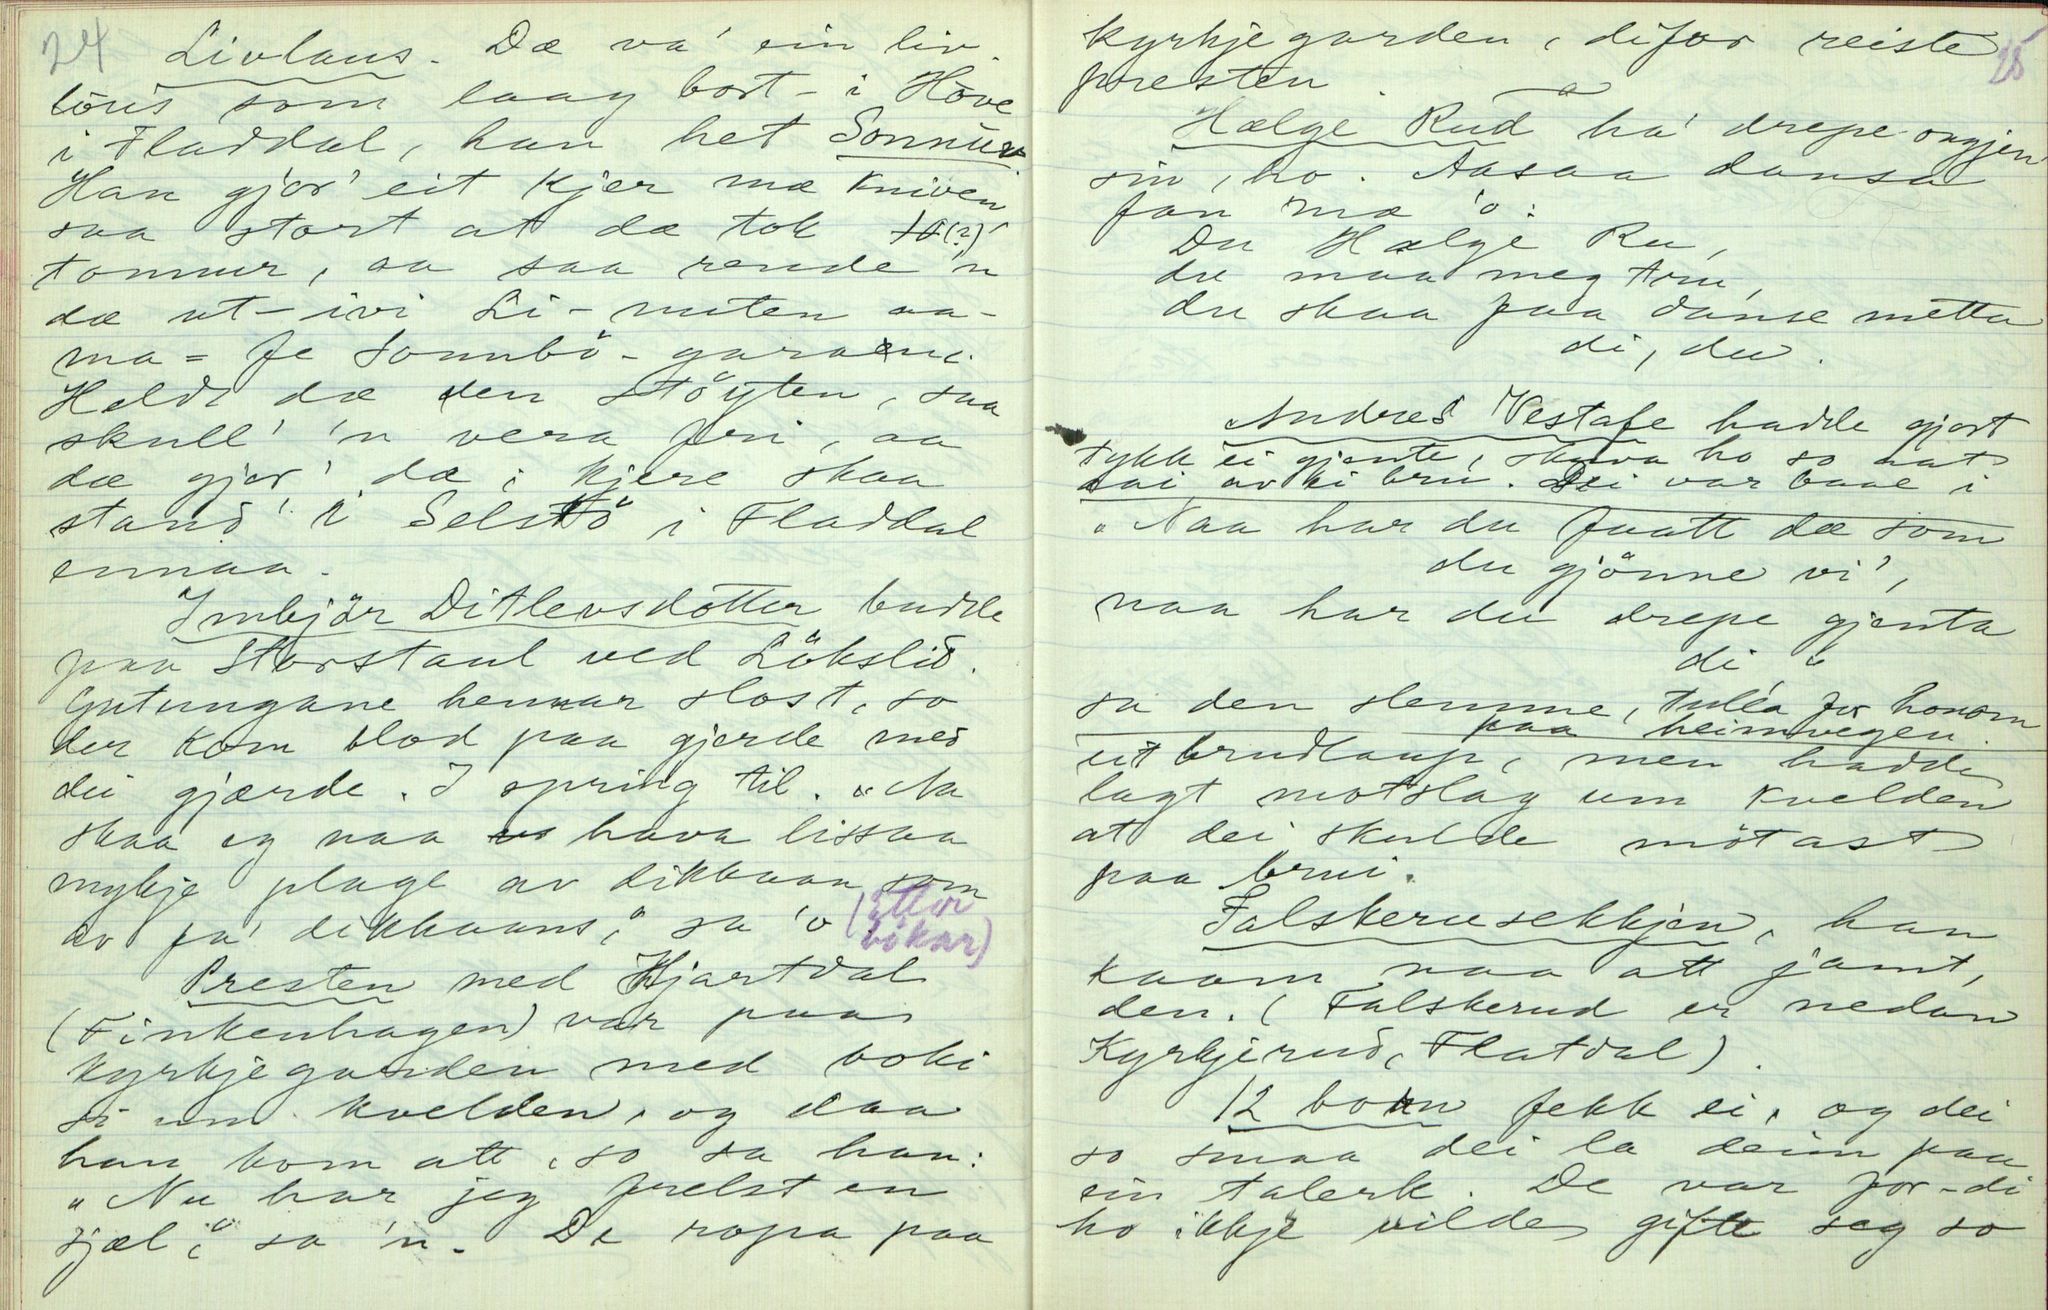 24
Livlaus. Dæ va' ein liv
löus som laag bort-i Höve
i Fladdal, han het Sonnüv
Han gjor' eit kjer mæ kniven
saa stort at dæ tok 10(?)
tonnur, aa saa rende 'n
dæ ut-ivi Li-nuten aa-
ma = fe Sonnbö-garane.
Heldt dæ den støyten, saa
skull' 'n vera fri, aa
dæ gjor' dæ; kjere skaa
stand' i Selstö i Fladdal
ennaa.
Imbjör Ditlevsdotter budde
paa Storstaul ved Löksli&d.
Gutungane hennar slost, so
der kom blod paa gjerde med
dei gjærde. I spring til. "Na
skaa eg naa hava lissaa
mykje plage av dikkaan som
av fa' dikkaans," sa 'o (Etter
bökar)
Presten med Hjartdal
(Finkenhagen) var paa
kyrkjegarden med boki
si um kvelden, og daa
han kom att, so sa han:
"Nu har jeg frelst en
sjæl," sa 'n. De ropa paa
25
kyrkjegarden, difor reiste
presten.
Hælge Rud ha' drepe ongjen
sin, ho. Aasaa dansa
fan mæ 'o:
Du Hælge Ru,
du maa meg tru,
du skaa faa danse metta
di, du.
Andres Vestafe hadde gjort
tykk ei gjente, skuva ho so ut
av ei bru. Dei var baae i
"Naa har du faatt dæ som
du gjönne vi',
naa har du drepe gjenta
di"
sa den slemme, tulla for honom
paa heimvegen.
eit brudlaup, men hadde
lagt motslag um kvelden
at dei skulde mötast
paa brui.
Falskerusekkjen, han
kaam naa att jamt,
den. (Falskerud er nedan
Kyrkjerud, Flatdal).
12 born fekk ei, og dei
so smaa dei la deim paa
ein talerk. De var for-di
ho ikkje vilde gifte seg so